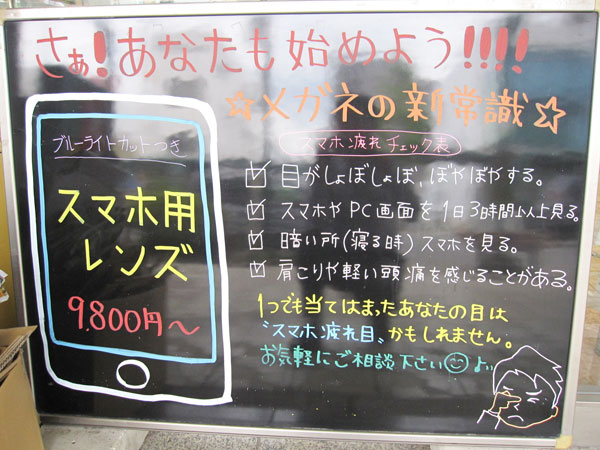 さぁ!あなたも始めよう!!!!
☆メガネの新常識☆
ブルーライトカットつき
スマホ用
レンズ
9.800円〜
スマホ疲れチェック表
☑ 目がしょぼしょぼ、ぼやぼやする。
☑ スマホやPC画面を1日3時間以上見る。
☑ 暗い所(寝る時)スマホを見る。
☑ 肩こりや軽い頭痛を感じることがある。
1つでも当てはまったあなたの目は
"スマホ疲れ目"かもしれません。
お気軽にご相談下さい☺♪